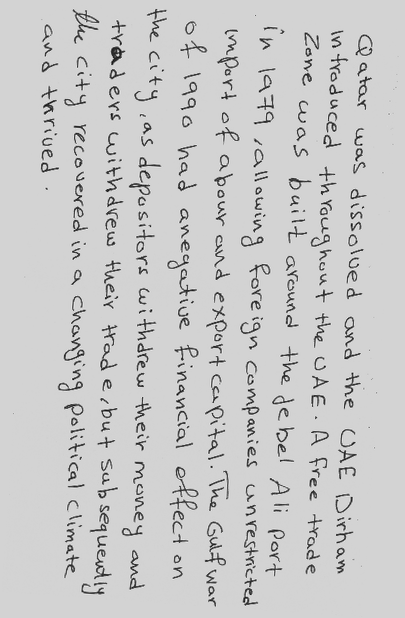 Qatar was dissolved and the UAE Dirham
introduced throughout the UAE. A free trade
Zone was built around the Jebel Ali port
in 1979, allowing foreign companies unrestricted
import of abour and export capital. The Gulf war
of 1990 had a negative financial effect on
the city, as depositors withdrew their money and
traders withdrew their trade, but subsequently
the city recovered in a changing political climate
and thrived.